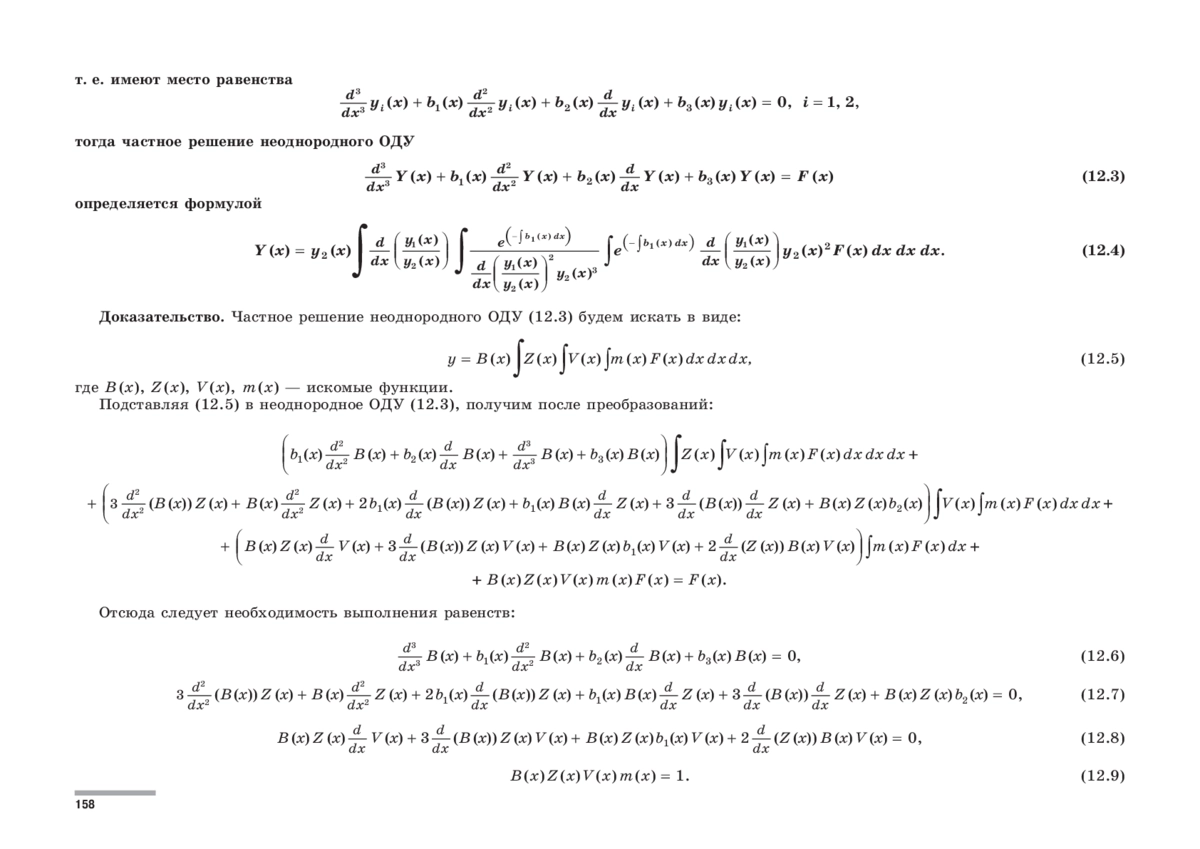 т. е. имеют место равенства
d³/dx³ yᵢ(x) + b₁(x) d²/dx² yᵢ(x) + b₂(x) d/dx yᵢ(x) + b₃(x) yᵢ(x) = 0, i = 1, 2,
тогда частное решение неоднородного ОДУ
d³/dx³ Y(x) + b₁(x) d²/dx² Y(x) + b₂(x) d/dx Y(x) + b₃(x) Y(x) = F(x) (12.3)
определяется формулой
Y(x) = y₂(x) ∫ d/dx (y₁(x)/y₂(x)) ∫ e^(−∫b₁(x) dx) / (d/dx (y₁(x)/y₂(x))² y₂(x)³) ∫ e^(−∫b₁(x) dx) d/dx (y₁(x)/y₂(x)) y₂(x)² F(x) dx dx dx. (12.4)
Доказательство. Частное решение неоднородного ОДУ (12.3) будем искать в виде:
y = B(x) ∫ Z(x) ∫ V(x) ∫ m(x) F(x) dx dx dx, (12.5)
где B(x), Z(x), V(x), m(x) — искомые функции.
Подставляя (12.5) в неоднородное ОДУ (12.3), получим после преобразований:
(b₁(x) d²/dx² B(x) + b₂(x) d/dx B(x) + d³/dx³ B(x) + b₃(x) B(x)) ∫ Z(x) ∫ V(x) ∫ m(x) F(x) dx dx dx +
+ (3 d²/dx² (B(x)) Z(x) + B(x) d²/dx² Z(x) + 2b₁(x) d/dx (B(x)) Z(x) + b₁(x) B(x) d/dx Z(x) + 3 d/dx (B(x)) d/dx Z(x) + B(x) Z(x) b₂(x)) ∫ V(x) ∫ m(x) F(x) dx dx +
+ (B(x) Z(x) d/dx V(x) + 3 d/dx (B(x)) Z(x) V(x) + B(x) Z(x) b₁(x) V(x) + 2 d/dx (Z(x)) B(x) V(x)) ∫ m(x) F(x) dx +
+ B(x) Z(x) V(x) m(x) F(x) = F(x).
Отсюда следует необходимость выполнения равенств:
d³/dx³ B(x) + b₁(x) d²/dx² B(x) + b₂(x) d/dx B(x) + b₃(x) B(x) = 0, (12.6)
3 d²/dx² (B(x)) Z(x) + B(x) d²/dx² Z(x) + 2b₁(x) d/dx (B(x)) Z(x) + b₁(x) B(x) d/dx Z(x) + 3 d/dx (B(x)) d/dx Z(x) + B(x) Z(x) b₂(x) = 0, (12.7)
B(x) Z(x) d/dx V(x) + 3 d/dx (B(x)) Z(x) V(x) + B(x) Z(x) b₁(x) V(x) + 2 d/dx (Z(x)) B(x) V(x) = 0, (12.8)
B(x) Z(x) V(x) m(x) = 1. (12.9)
158